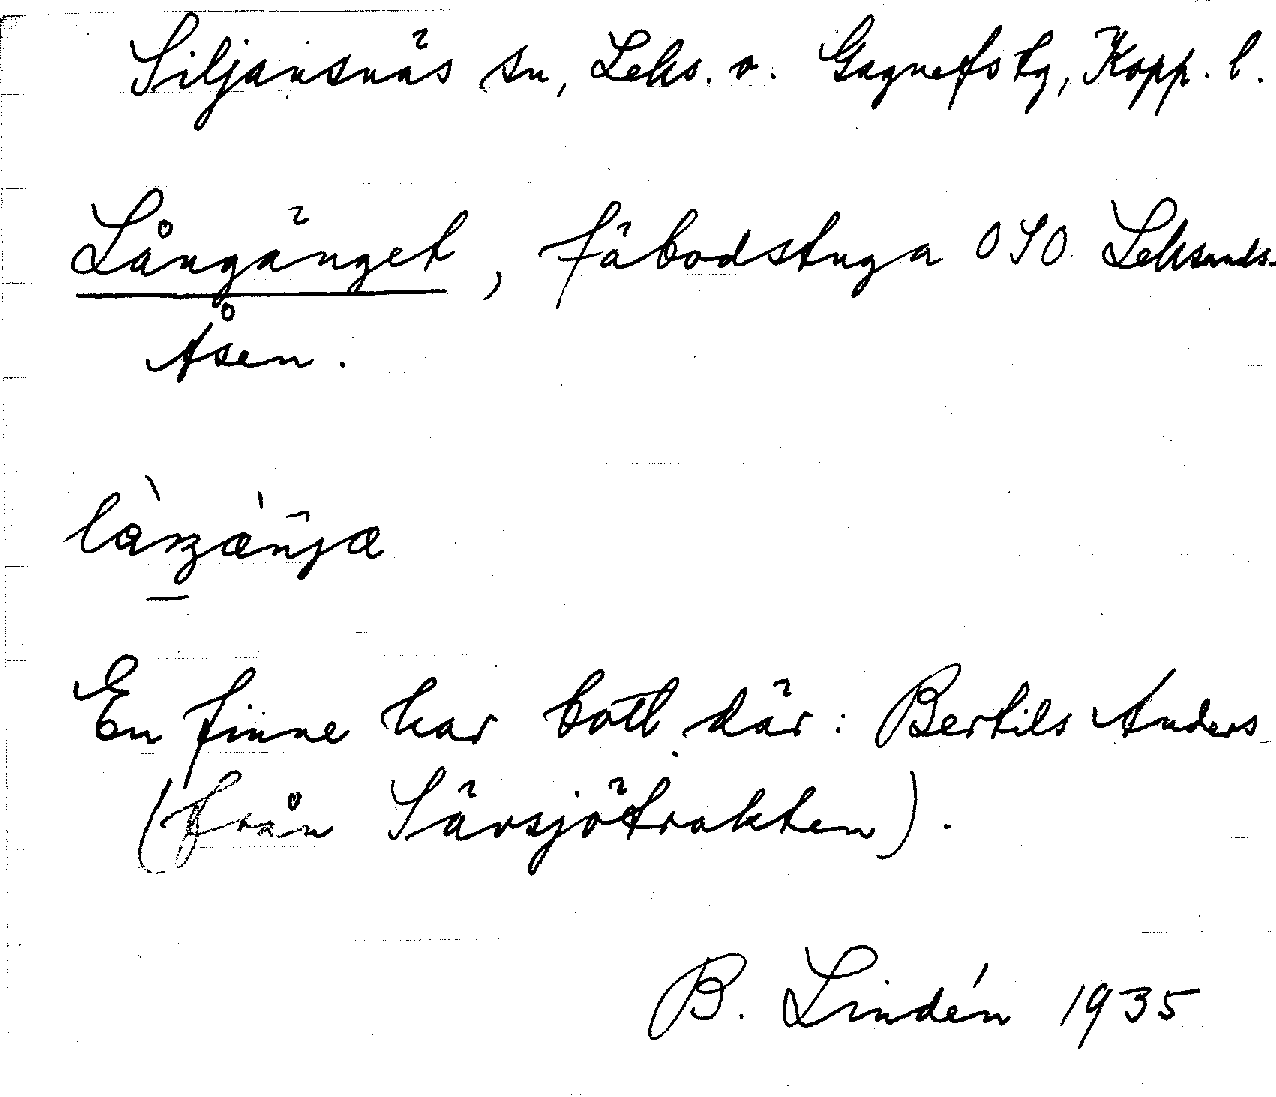 Siljansnäs sn, Leks. o. Gagnefs tg, Kopp. l.
Långänget, fäbodstuga OSO Leksands-
Åsen.
En finne har bott där: Bertils Anders
(från Sävsjötrakten).
B. Lindén 1935